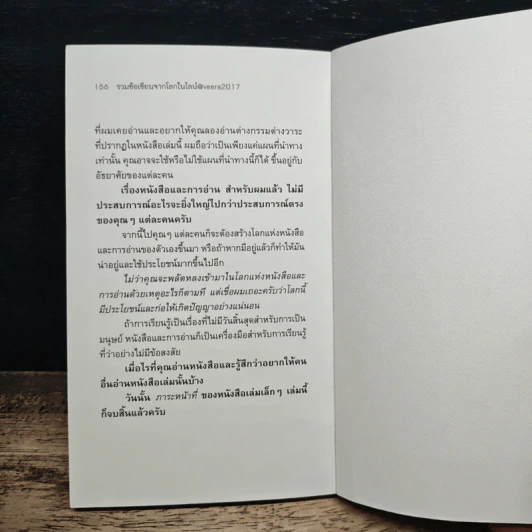 156 รวมข้อเขียนจากโลกในไลน์@veera2017
ที่ผมเคยอ่านและอยากให้คุณลองอ่านต่างกรรมต่างวาระ
ที่ปรากฏในหนังสือเล่มนี้ ผมถือว่าเป็นเพียงแค่แผนที่นำทาง
เท่านั้น คุณอาจจะใช้หรือไม่ใช้แผนที่นำทางนี้ก็ได้ ขึ้นอยู่กับ
อัธยาศัยของแต่ละคน
เรื่องหนังสือและการอ่าน สำหรับผมแล้ว ไม่มี
ประสบการณ์อะไรจะยิ่งใหญ่ไปกว่าประสบการณ์ตรง
ของคุณๆ แต่ละคนครับ
จากนี้ไปคุณๆ แต่ละคนก็จะต้องสร้างโลกแห่งหนังสือ
และการอ่านของตัวเองขึ้นมา หรือถ้าหากมีอยู่แล้วก็ทำให้มัน
น่าอยู่และใช้ประโยชน์มากขึ้นไปอีก
ไม่ว่าคุณจะพลัดหลงเข้ามาในโลกแห่งหนังสือและ
การอ่านด้วยเหตุอะไรก็ตามที แต่เชื่อผมเถอะครับว่าโลกนี้
มีประโยชน์และก่อให้เกิดปัญญาอย่างแน่นอน
ถ้าการเรียนรู้เป็นเรื่องที่ไม่มีวันสิ้นสุดสำหรับการเป็น
มนุษย์ หนังสือและการอ่านก็เป็นเครื่องมือสำหรับการเรียนรู้
ที่ว่าอย่างไม่มีข้อสงสัย
เมื่อไรที่คุณอ่านหนังสือและรู้สึกว่าอยากให้คน
อื่นอ่านหนังสือเล่มนั้นบ้าง
วันนั้น ภาระหน้าที่ ของหนังสือเล่มเล็กๆ เล่มนี้
ก็จบสิ้นแล้วครับ